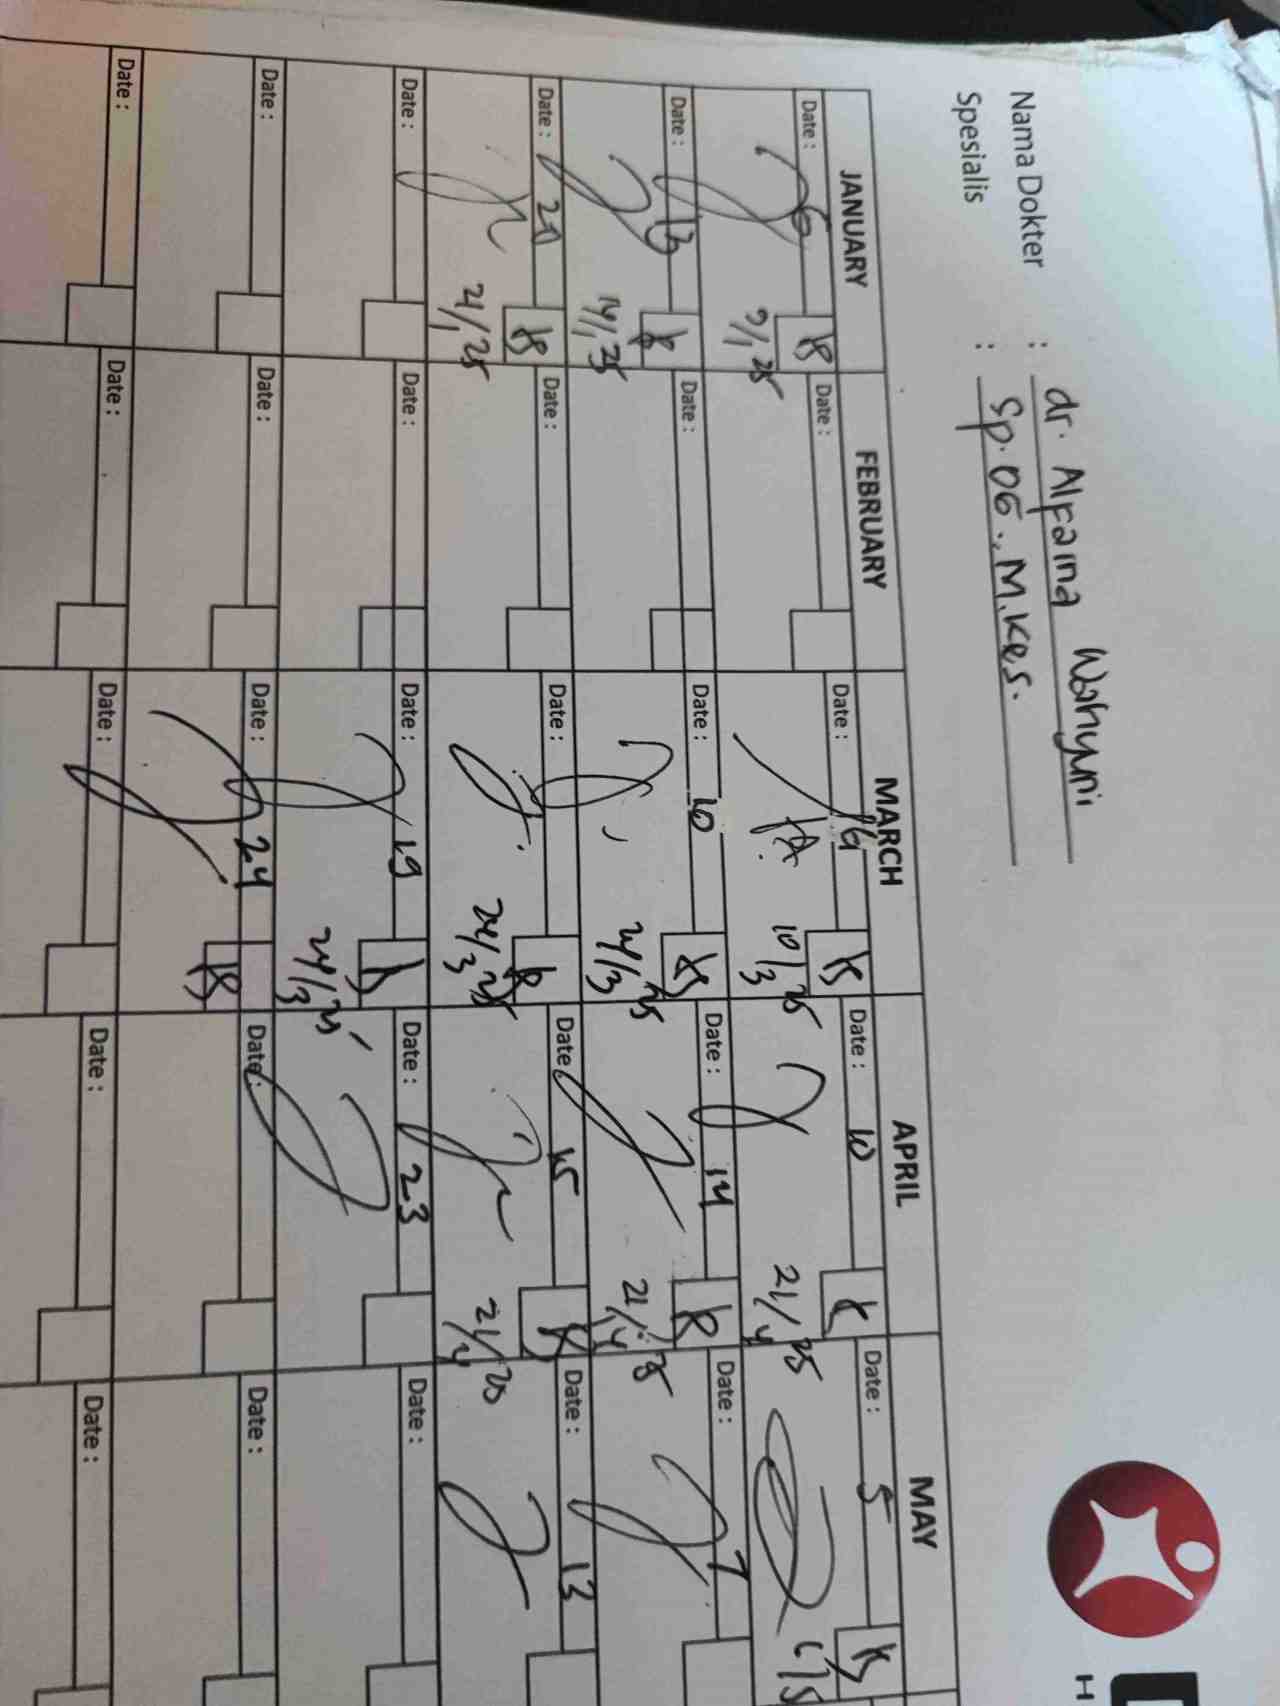 Nama Dokter : dr. Alfaina Wahyuni
Spesialis : Sp. OG., M.Kes.
JANUARY FEBRUARY MARCH APRIL MAY
Date : 6 Date : Date : Date : 10 Date : 5
9/1 25 10/3 25 21/4 25
Date : 13 Date : Date : 10 Date : 14 Date : 7
14/1 25 24/3 25 21/4 25
Date : 20 Date : Date : Date : 15 Date : 13
21/1 25 24/3 25 21/4 25
Date : Date : Date : 19 Date : 23 Date :
24/3 25
Date : Date : Date : 24 Date : Date :
Date : Date : Date : Date : Date :
H